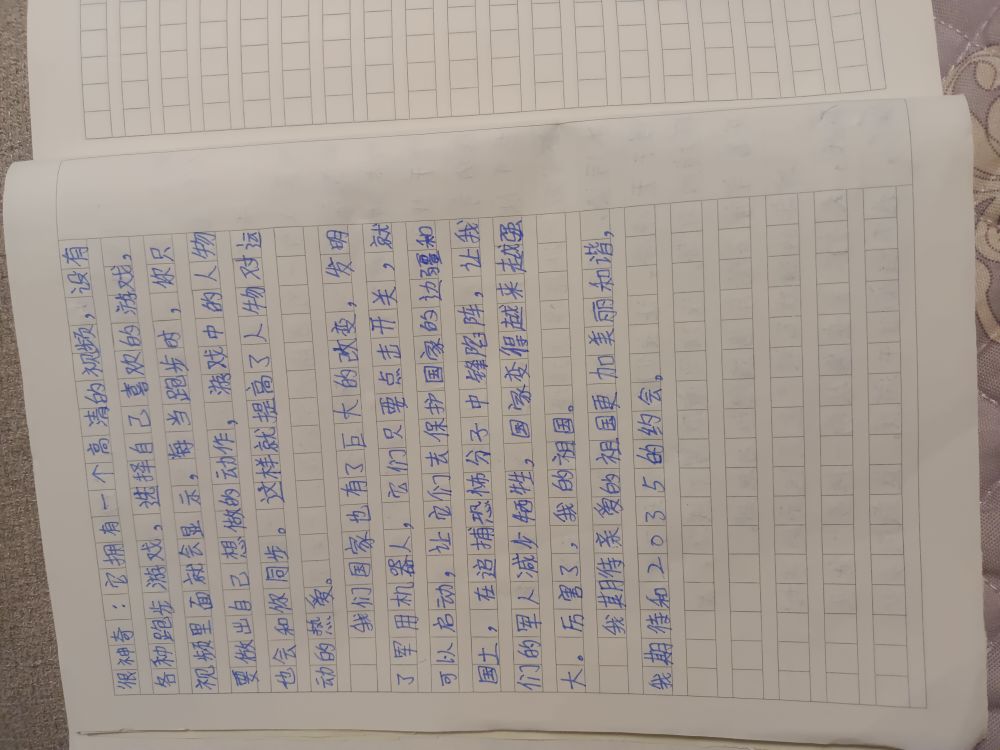 很神奇：它拥有一个高清的视频，没有
各种跑步游戏，选择自己喜欢的游戏，
视频里面就会显示，每当跑步时，你只
要做出自己想做的动作，游戏中的人物
也会和你同步。这样就提高了人物对运
动的热爱。
我们国家也有了巨大的改变，发明
了军用机器人，它们只要点击开关，就
可以启动，让它们去保护国家的边疆和
国土，在追捕恐怖分子中锋陷阵，让我
们的军人减少牺牲，国家变得越来越强
大。厉害了，我的祖国。
我期待亲爱的祖国更加美丽和谐，
我期待和2035的约会。